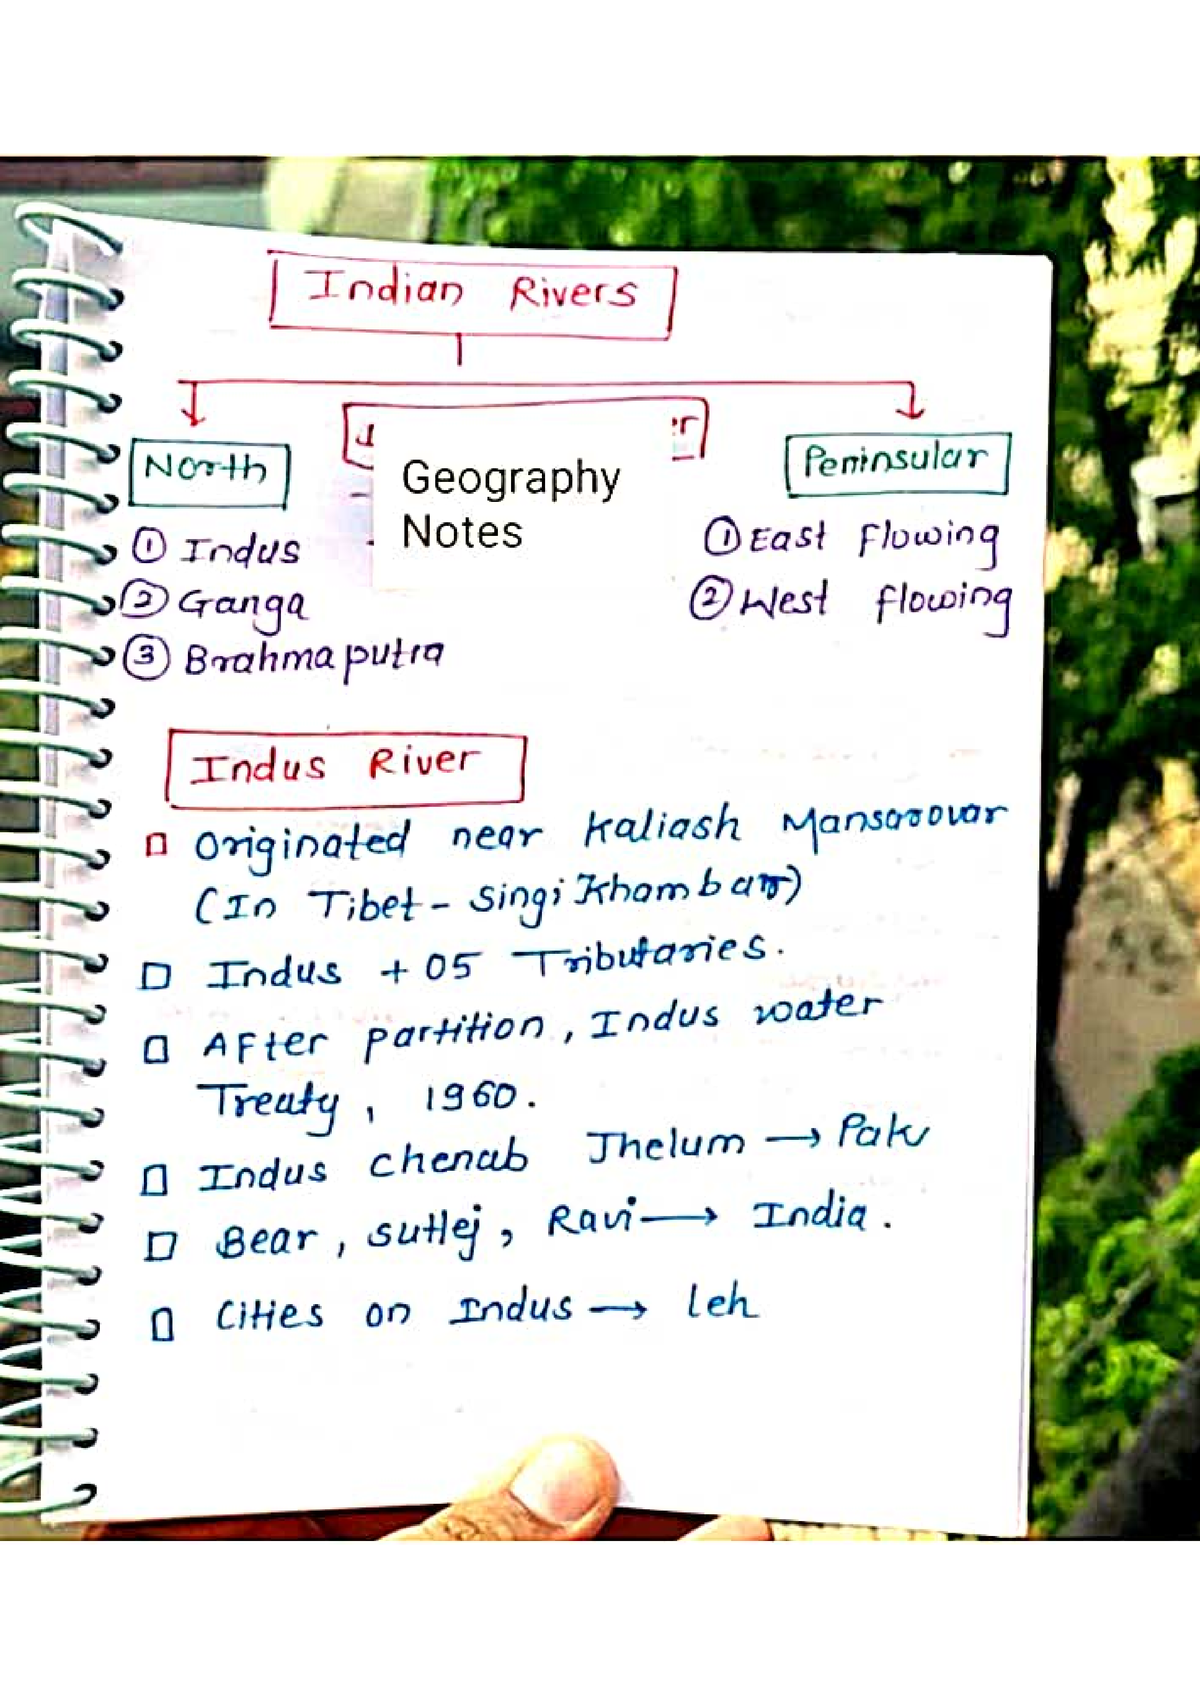 Indian Rivers
North
Geography
Notes
Peninsular
① Indus
② Ganga
③ Brahmaputra
① East Flowing
② West flowing
Indus River
Originated near Kaliash Mansarovar
(In Tibet - Singi Khamban)
Indus + 05 Tributaries.
After partition, Indus water
Treaty, 1960.
Indus Chenab Jhelum → Pak
Bear, Sutlej, Ravi → India.
Cities on Indus → leh